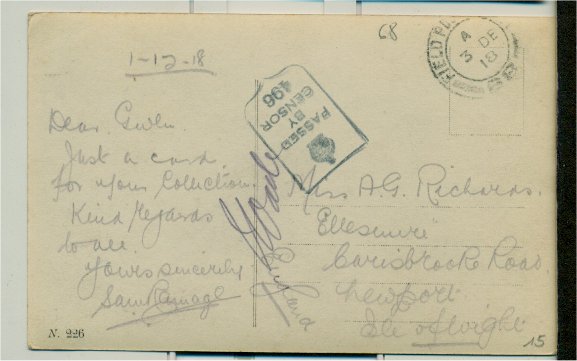 68
1-12-18
FIELD PO
A
3 DE
18
PASSED
BY
CENSOR
496
Dear Gwen.
Just a card
for your Collection.
Kind Regards
to all.
Yours sincerely
Sam Ramage
Miss A.G. Richards.
Ellesmere
Carisbrooke Road.
Newport
Isle of Wight
England
N. 226
15